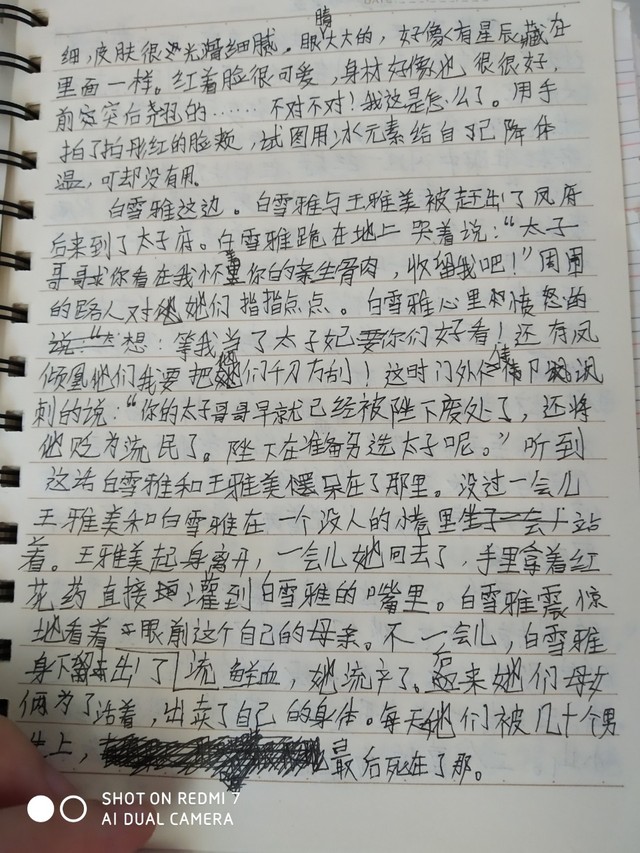 细，皮肤很光滑细腻。眼睛大大的，好像有星辰藏在
里面一样。红着脸很可爱，身材好像也很很好，
前突突后翘翘的……不对不对！我这是怎么了。用手
拍了拍彤红的脸颊，试图用冰元素给自己降体
温，可却没有用。
白雪雅这边。白雪雅与王雅美被赶出了凤府
后来到了太子府。白雪雅跪在地上哭着说：“太子
哥哥求你看在我怀里你的亲生骨肉，收留我吧！”周围
的路人对她们指指点点。白雪雅心里愤怒的
想：等我当了太子妃要你们好看！还有凤
倾凰他们我要把他们千刀万剐！这时门外侍卫讽
刺的说：“你的太子哥哥早就已经被陛下废处了，还将
他贬为流民了。陛下在准备另选太子呢。”听到
这话白雪雅和王雅美愣呆在了那里。没过一会儿
王雅美和白雪雅在一个没人的小巷里站
着。王雅美起身离开，一会儿她回去了，手里拿着红
花药直接灌到白雪雅的嘴里。白雪雅震惊
地看着眼前这个自己的母亲。不一会儿，白雪雅
身下流出了鲜血，她流产了。后来她们母女
俩为了活着，出卖了自己的身体。每天她们被几十个男
上，最后死在了那。
SHOT ON REDMI 7
AI DUAL CAMERA